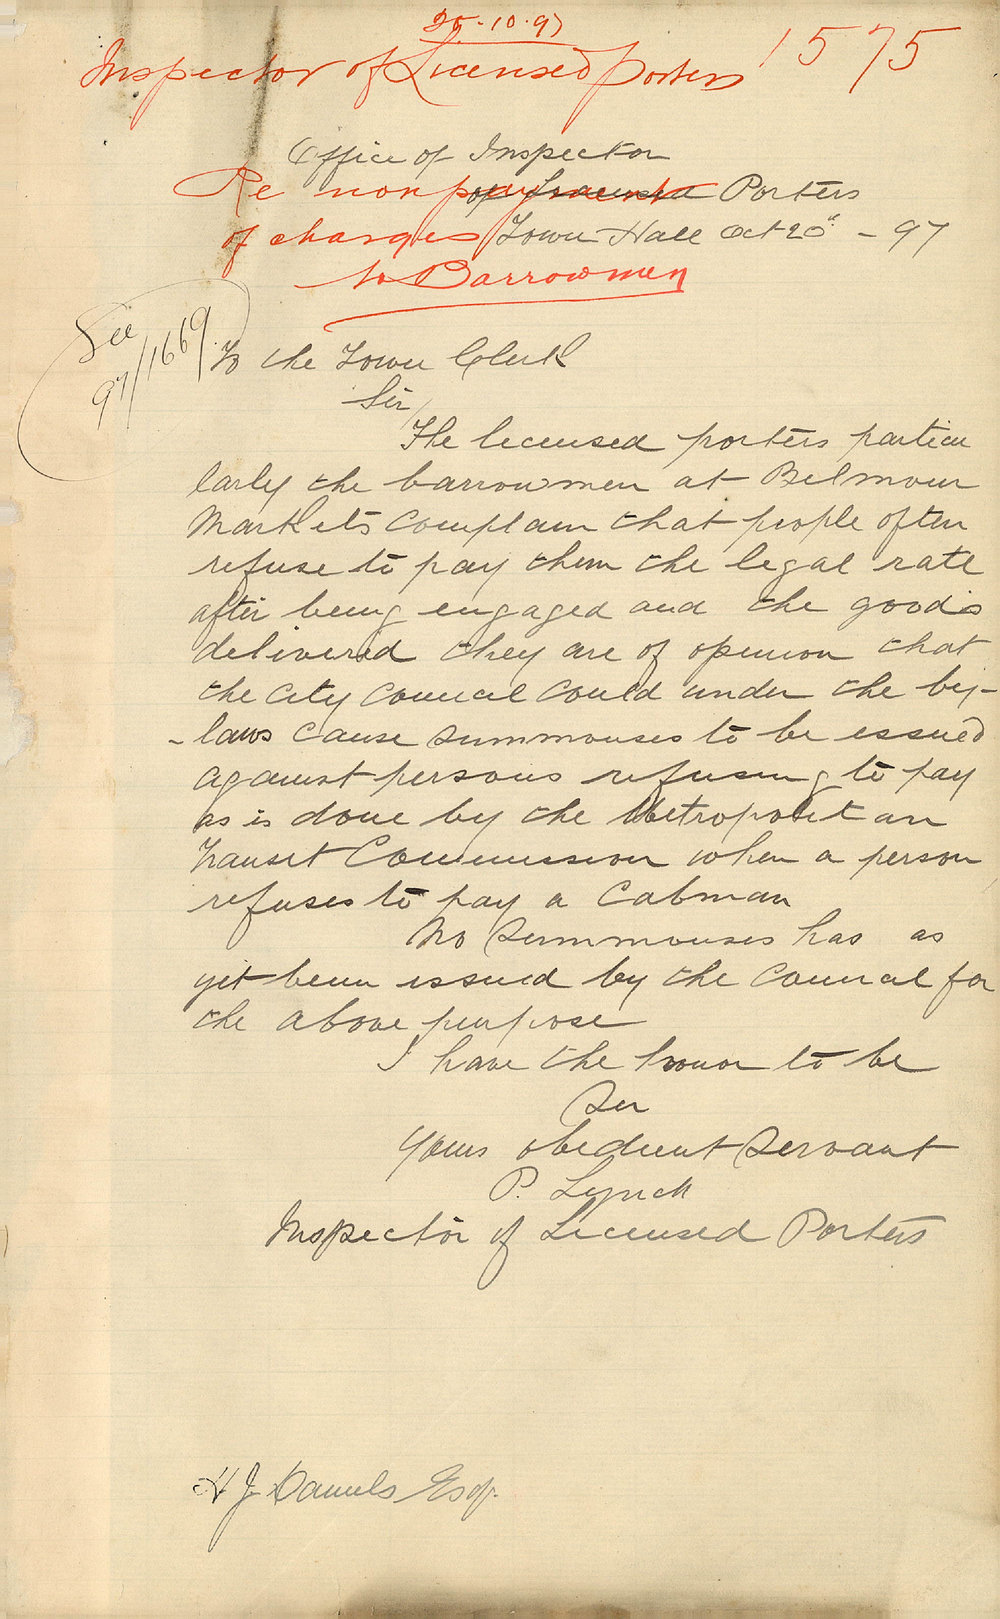 20.10.97
Inspector of Licensed Porters 1575
Office of Inspector
Re non payment
of Licensed Porters
of charges
Town Hall Oct 20" - 97
to Barrowmen
See
97/1669
To the Town Clerk
Sir/
The licensed porters particu
larly the barrowmen at Belmour
Markets complain that people often
refuse to pay them the legal rate
after being engaged and the goods
delivered they are of opinion that
the City Council could under the by-
-laws cause summonses to be issued
against persons refusing to pay
as is done by the Metropolitan
Transit Commission when a person
refuses to pay a Cabman
No Summonses has as
yet been issued by the Council for
the above purpose
I have the honor to be
Sir
Yours obedient Servant
P. Lynch
Inspector of Licensed Porters
H J Daniels Esq.